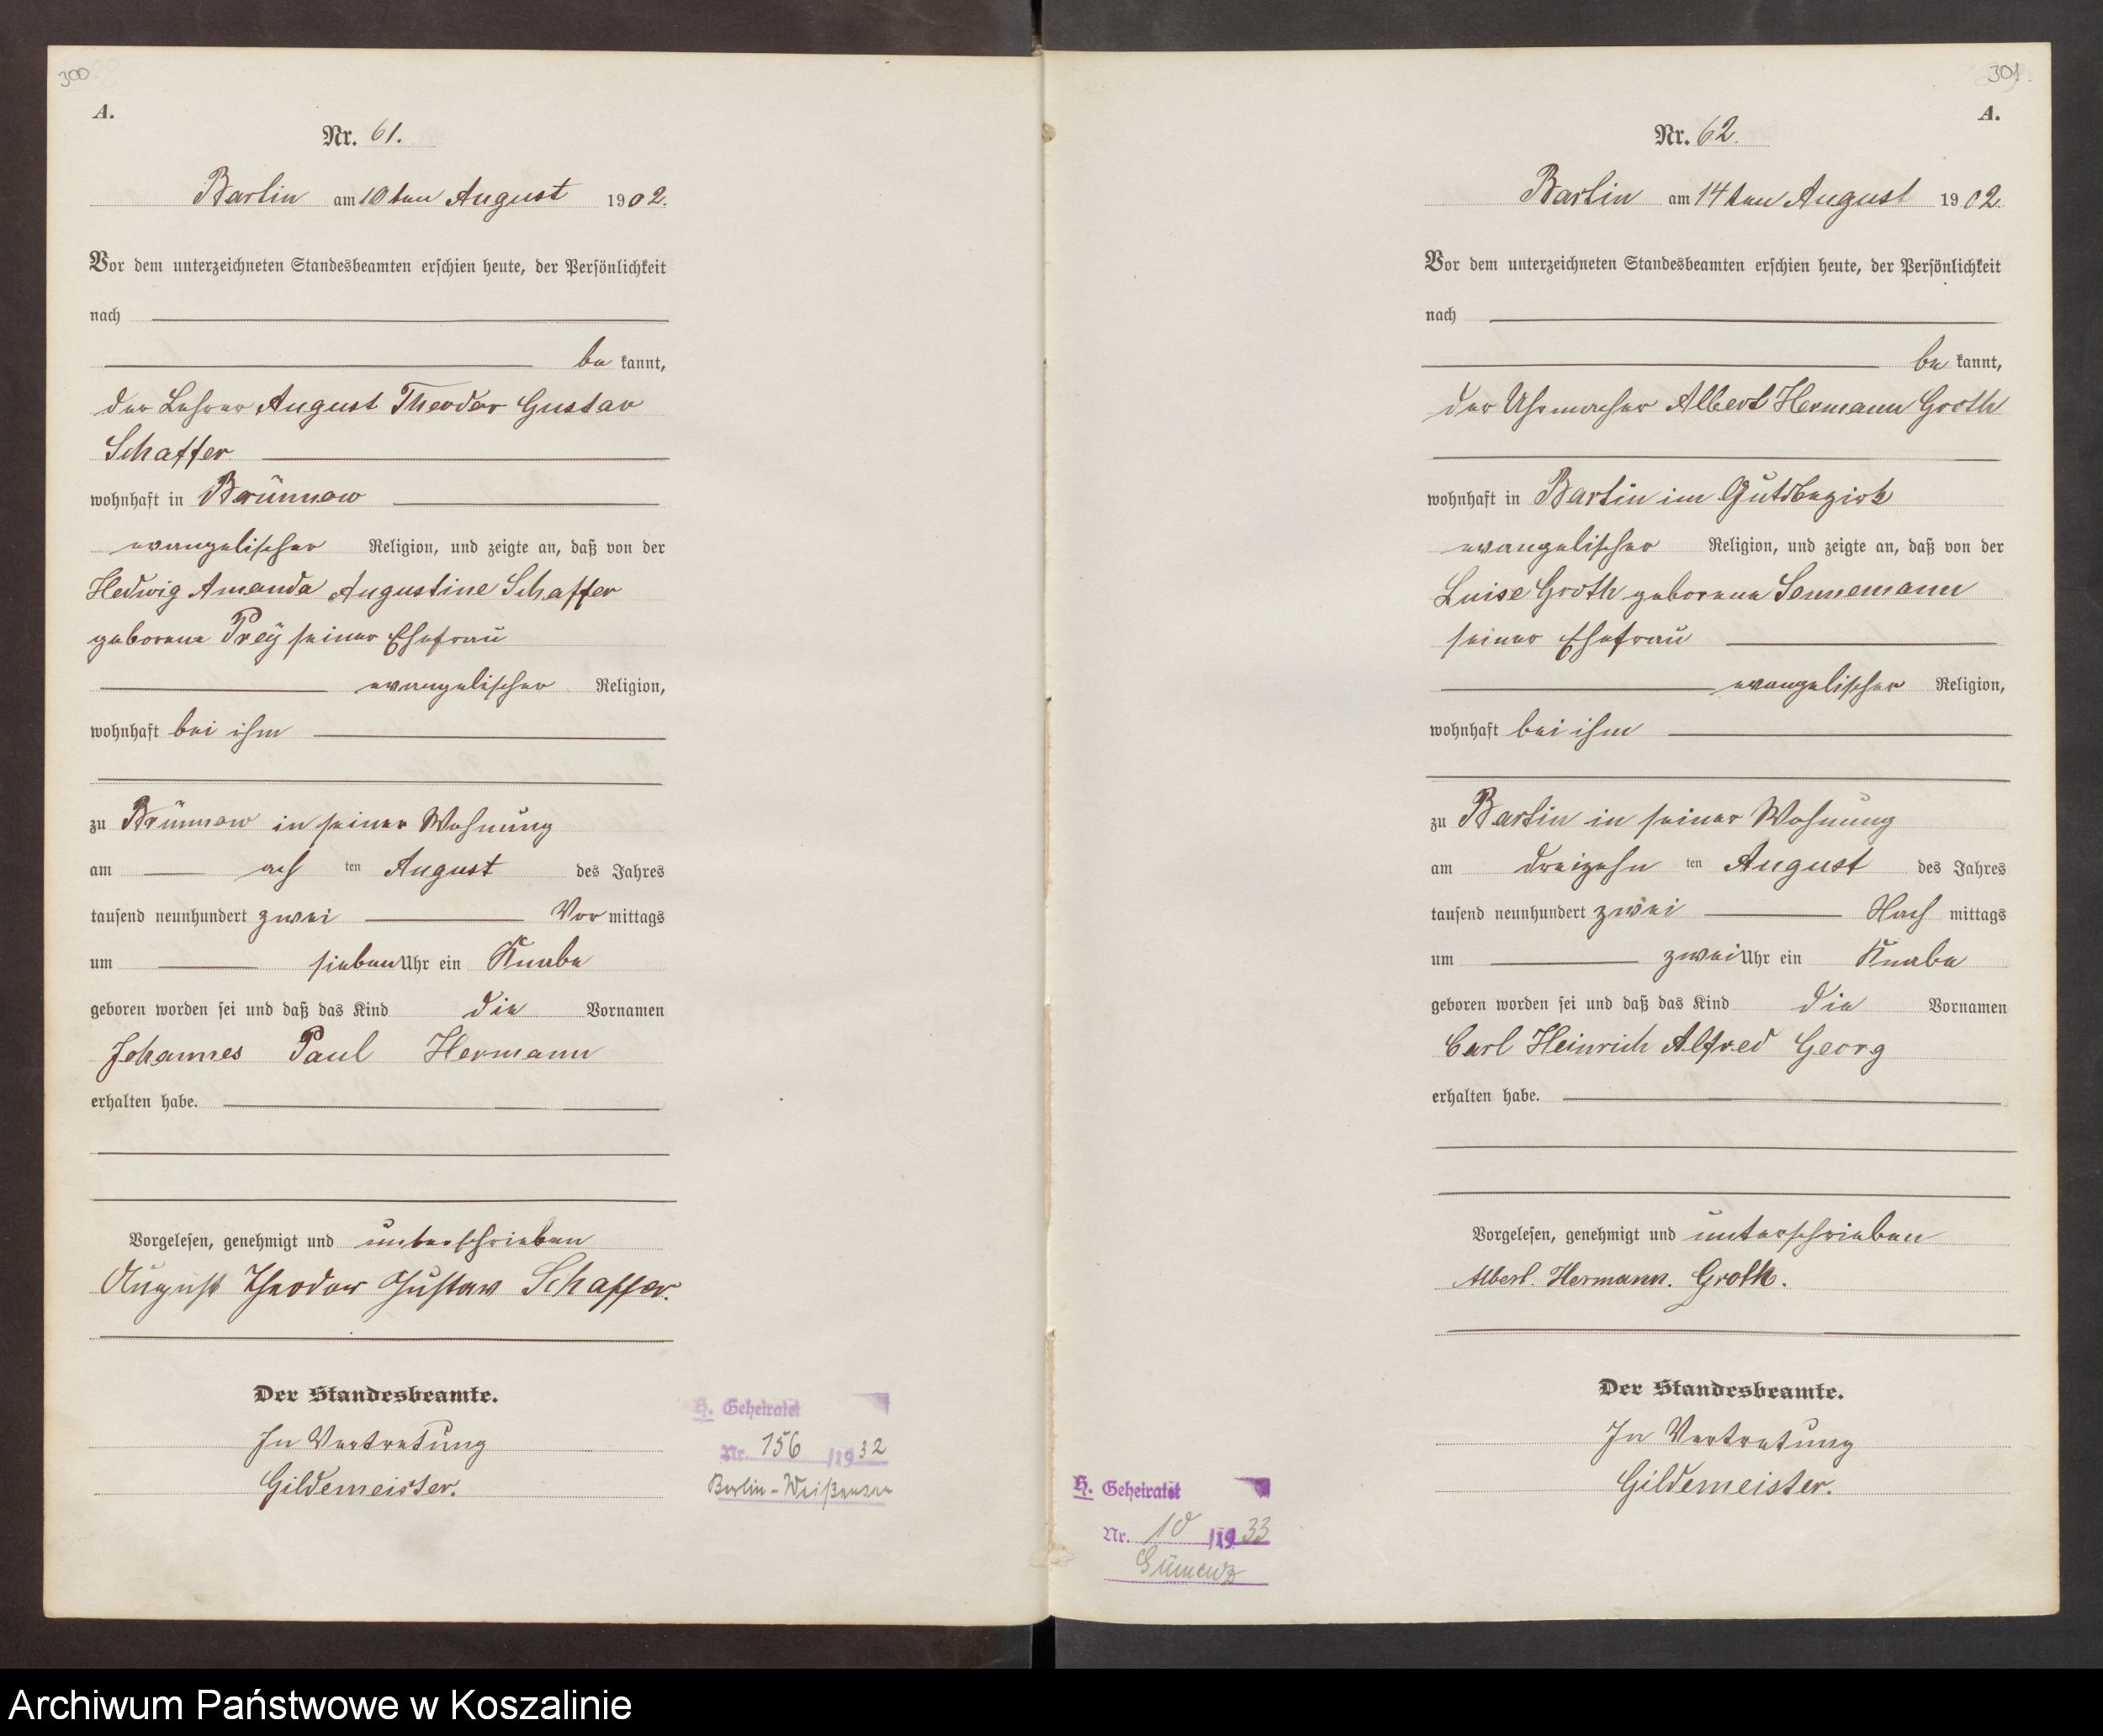 300
A.
Nr. 61.
Bartin am 10ten August 1902.
Vor dem unterzeichneten Standesbeamten erschien heute, der Persönlichkeit
nach
be kannt,
der Lehrer August Theodor Gustav
Schaffer
wohnhaft in Brünnow
evangelischer Religion, und zeigte an, daß von der
Hedwig Amanda Augustine Schaffer
geborene Preÿ seiner Ehefrau
evangelischer Religion,
wohnhaft bei ihm
zu Brünnow in seiner Wohnung
am ach ten August des Jahres
tausend neunhundert zwei Vor mittags
um sieben Uhr ein Knabe
geboren worden sei und daß das Kind die Vornamen
Johannes Paul Hermann
erhalten habe.
Vorgelesen, genehmigt und unterschrieben
August Theodor Gustav Schaffer.
Der Standesbeamte.
In Vertretung
Gildemeister.
H. Geheiratet
Nr. 156 /1932
Berlin-Weißensee
301
A.
Nr. 62.
Bartin am 14ten August 1902.
Vor dem unterzeichneten Standesbeamten erschien heute, der Persönlichkeit
nach
be kannt,
der Uhrmacher Albert Hermann Groth
wohnhaft in Bartin im Gutsbezirk
evangelischer Religion, und zeigte an, daß von der
Luise Groth geborene Sennemann
seiner Ehefrau
evangelischer Religion,
wohnhaft bei ihm
zu Bartin in seiner Wohnung
am dreizehn ten August des Jahres
tausend neunhundert zwei Nach mittags
um zwei Uhr ein Knabe
geboren worden sei und daß das Kind die Vornamen
Carl Heinrich Alfred Georg
erhalten habe.
Vorgelesen, genehmigt und unterschrieben
Albert. Hermann. Groth.
Der Standesbeamte.
In Vertretung
Gildemeister.
H. Geheiratet
Nr. 10 /1933
Gumenz
Archiwum Państwowe w Koszalinie